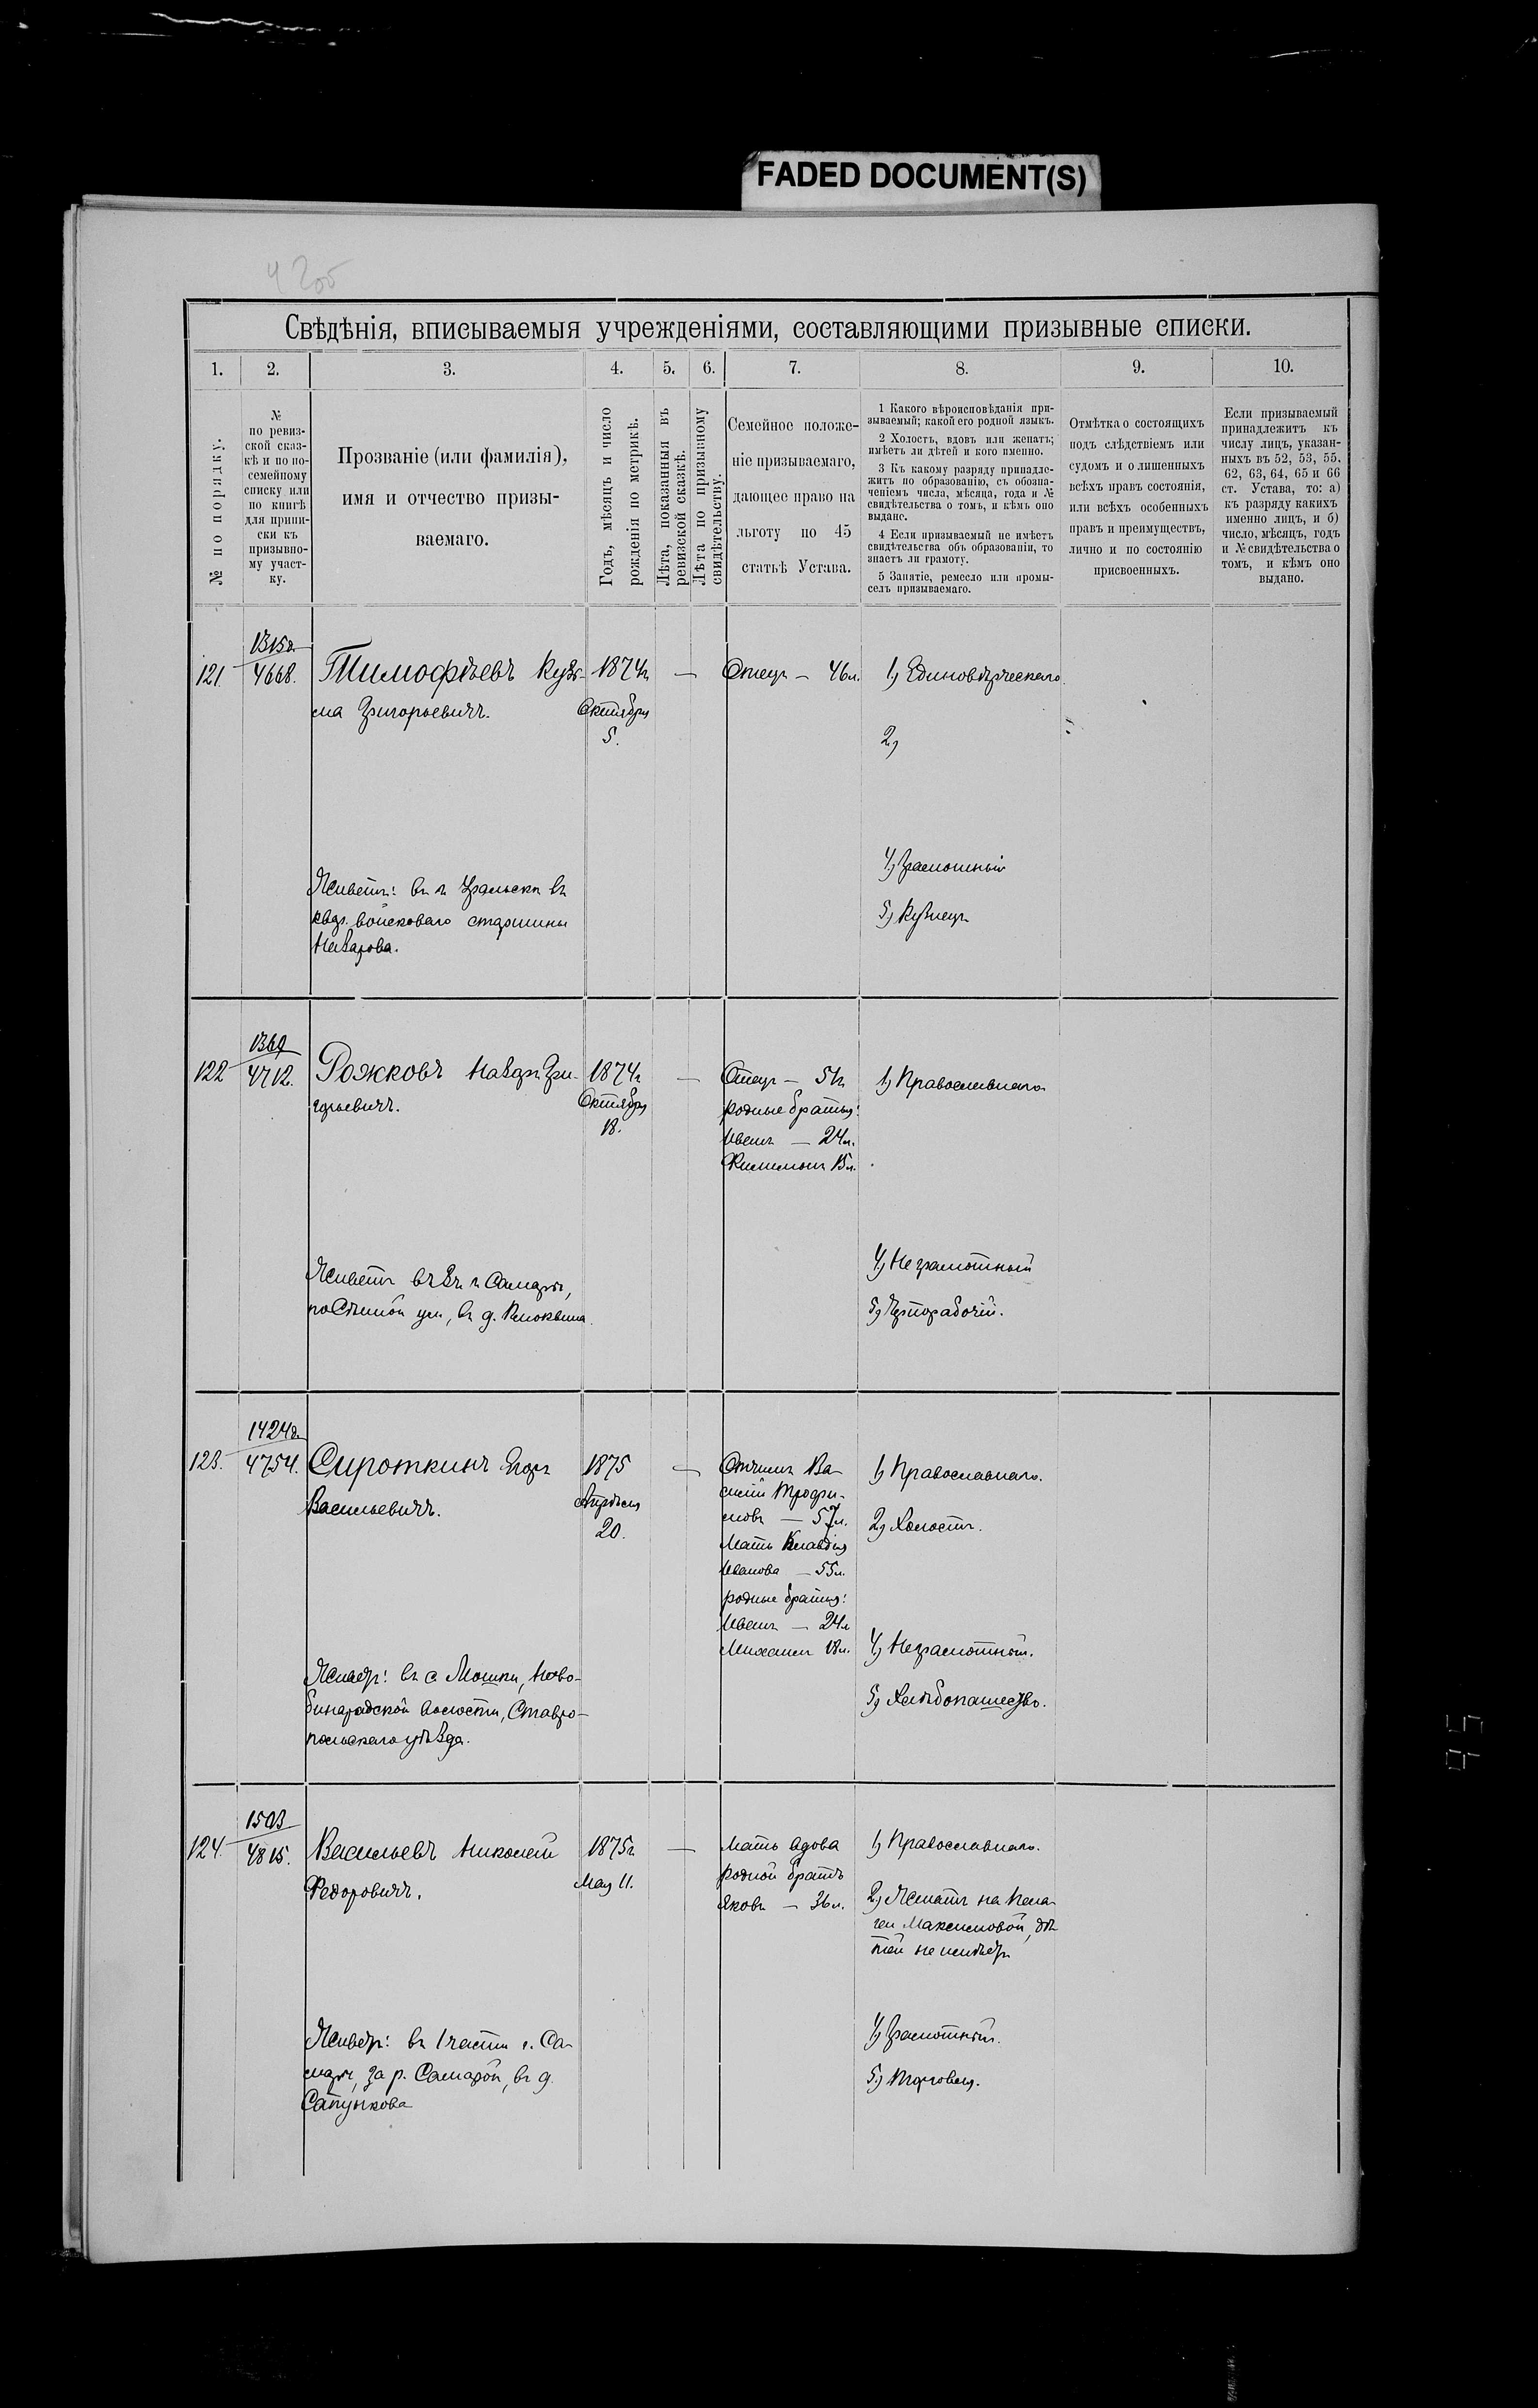 FADED DOCUMENT(S)
Свѣдѣнія, вписываемыя учрежденіями, составляющими призывные списки.
1. 2. 3. 4. 5. 6. 7. 8. 9. 10.
№ по порядку.
№
по ревиз-
ской сказ-
кѣ и по по-
семейному
списку или
по книгѣ
для припи-
ски къ
призывно-
му участ-
ку.
Прозваніе (или фамилія),
имя и отчество призы-
ваемаго.
Годъ, мѣсяцъ и число
рожденія по метрикѣ.
Лѣта, показанныя въ
ревизской сказкѣ.
Лѣта по призывному
свидѣтельству.
Семейное положе-
ніе призываемаго,
дающее право на
льготу по 45
статьѣ Устава.
1 Какого вѣроисповѣданія при-
зываемый; какой его родной языкъ.
2 Холостъ, вдовъ или женатъ;
имѣетъ ли дѣтей и кого именно.
3 Къ какому разряду принадле-
житъ по образованію, съ обозна-
ченіемъ числа, мѣсяца, года и №
свидѣтельства о томъ, и кѣмъ оно
выдано.
4 Если призываемый не имѣетъ
свидѣтельства объ образованіи, то
знаетъ ли грамоту.
5 Занятіе, ремесло или промы-
селъ призываемаго.
Отмѣтка о состоящихъ
подъ слѣдствіемъ или
судомъ и о лишенныхъ
всѣхъ правъ состоянія,
или всѣхъ особенныхъ
правъ и преимуществъ,
лично и по состоянію
присвоенныхъ.
Если призываемый
принадлежитъ къ
числу лицъ, указан-
ныхъ въ 52, 53, 55,
62, 63, 64, 65 и 66
ст. Устава, то: а)
къ разряду какихъ
именно лицъ, и б)
число, мѣсяцъ, годъ
и № свидѣтельства о
томъ, и кѣмъ оно
выдано.
1315д.
121. 4668. Тимофѣевъ Кузь- 1874г — Отецъ — 46л. 1) Единовѣрческаго
ма Григорьевичъ. Октября
5.
2)
4) Грамотный
Живетъ: въ г Уральскѣ въ
5) Кузнецъ
квар. войсковаго старшины
Назарова.
1369
122 4712. Рожковъ Назаръ Гри- 1874г — Отецъ — 51л 1) Православнаго
горьевичъ. Октября родные братья:
18. Иванъ — 24л.
Филимонъ 15л.
4) Неграмотный
Живетъ въ г Самарѣ,
5) Чернорабочій.
1424д.
123. 4754. Сироткинъ Егоръ 1875 — Отчимъ Ва- 1) Православнаго.
Васильевичъ. Апрѣля силій Трофи-
20. мовъ — 57л. 2) Холостъ.
Мать Клавдія
Иванова — 55л.
родные братья:
Иванъ — 24л
Михаилъ 18л. 4) Неграмотный.
Живетъ: въ с. Мошки, Ново-
5) Хлѣбопашество.
бинарадской волости, Ставро-
польскаго уѣзда.
1503
124. 4815. Васильевъ Николай 1875г — Мать вдова 1) Православнаго.
Федоровичъ. Мая 11. родной братъ
Яковъ — 36л. 2) Женатъ на Пела-
геи Максимовой, дѣ-
тей не имѣетъ
4) Грамотный.
Живетъ: въ 1 части г. Са-
марѣ, за р. Самарой, въ д.
5.) Торговля.
Сапункова